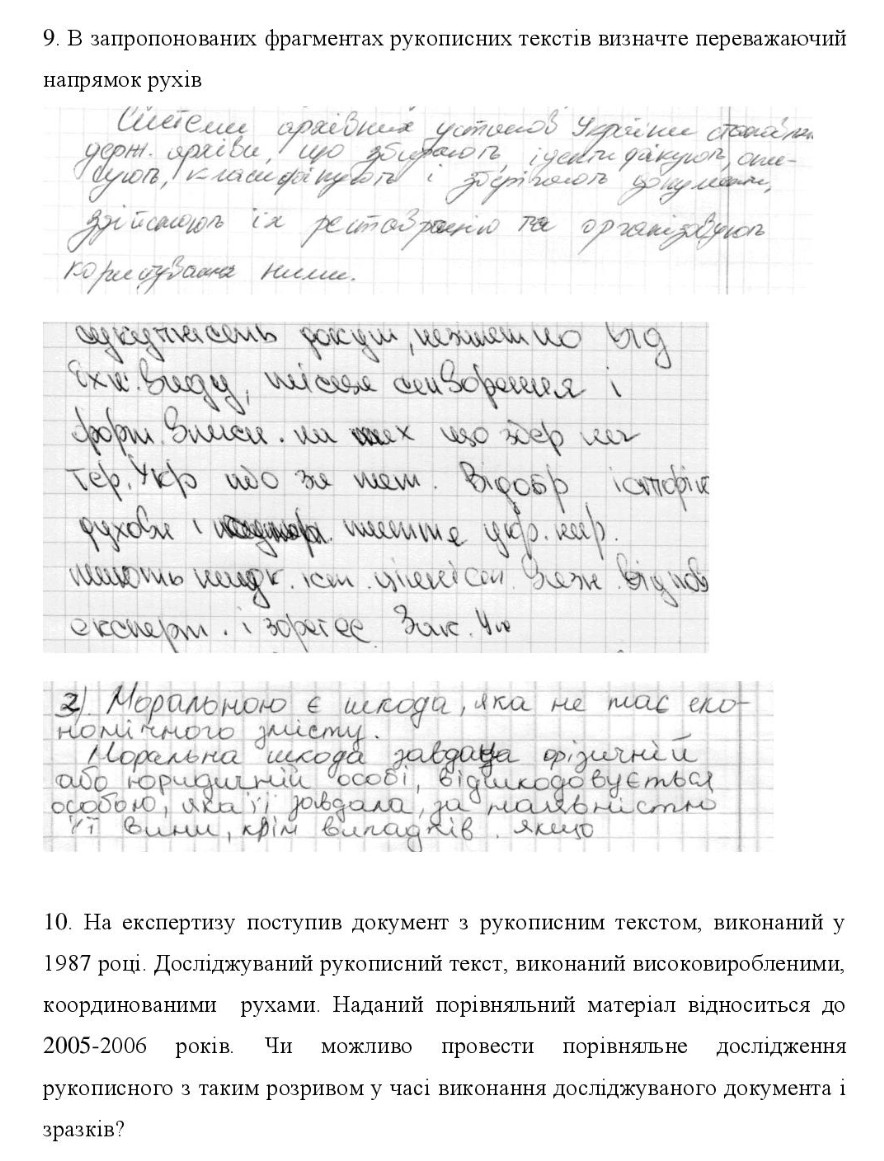 9. В запропонованих фрагментах рукописних текстів визначте переважаючий
напрямок рухів
Системи архівних установ України
держ. архіви, що зберігають, ідентифікують, опи-
сують, класифікують і зберігають документи,
здійснюють їх реставрацію та організовують
користування ними.
докум, незалежно від
їхн. виду, місця створення і
форм. власн. на що збер на
тер. Укр або за меж. Відобр історію
духовн і укр. нар.
мають наук. іст. цінність. відпов
експерт. і зареєс. Зак. Укр
2) Моральною є шкода, яка не має еко-
номічного змісту.
Моральна шкода завдана фізичній
або юридичній особі, відшкодовується
особою, яка її завдала, за наявністю
її вини, крім випадків. якщо
10. На експертизу поступив документ з рукописним текстом, виконаний у
1987 році. Досліджуваний рукописний текст, виконаний високовиробленими,
координованими рухами. Наданий порівняльний матеріал відноситься до
2005-2006 років. Чи можливо провести порівняльне дослідження
рукописного з таким розривом у часі виконання досліджуваного документа і
зразків?